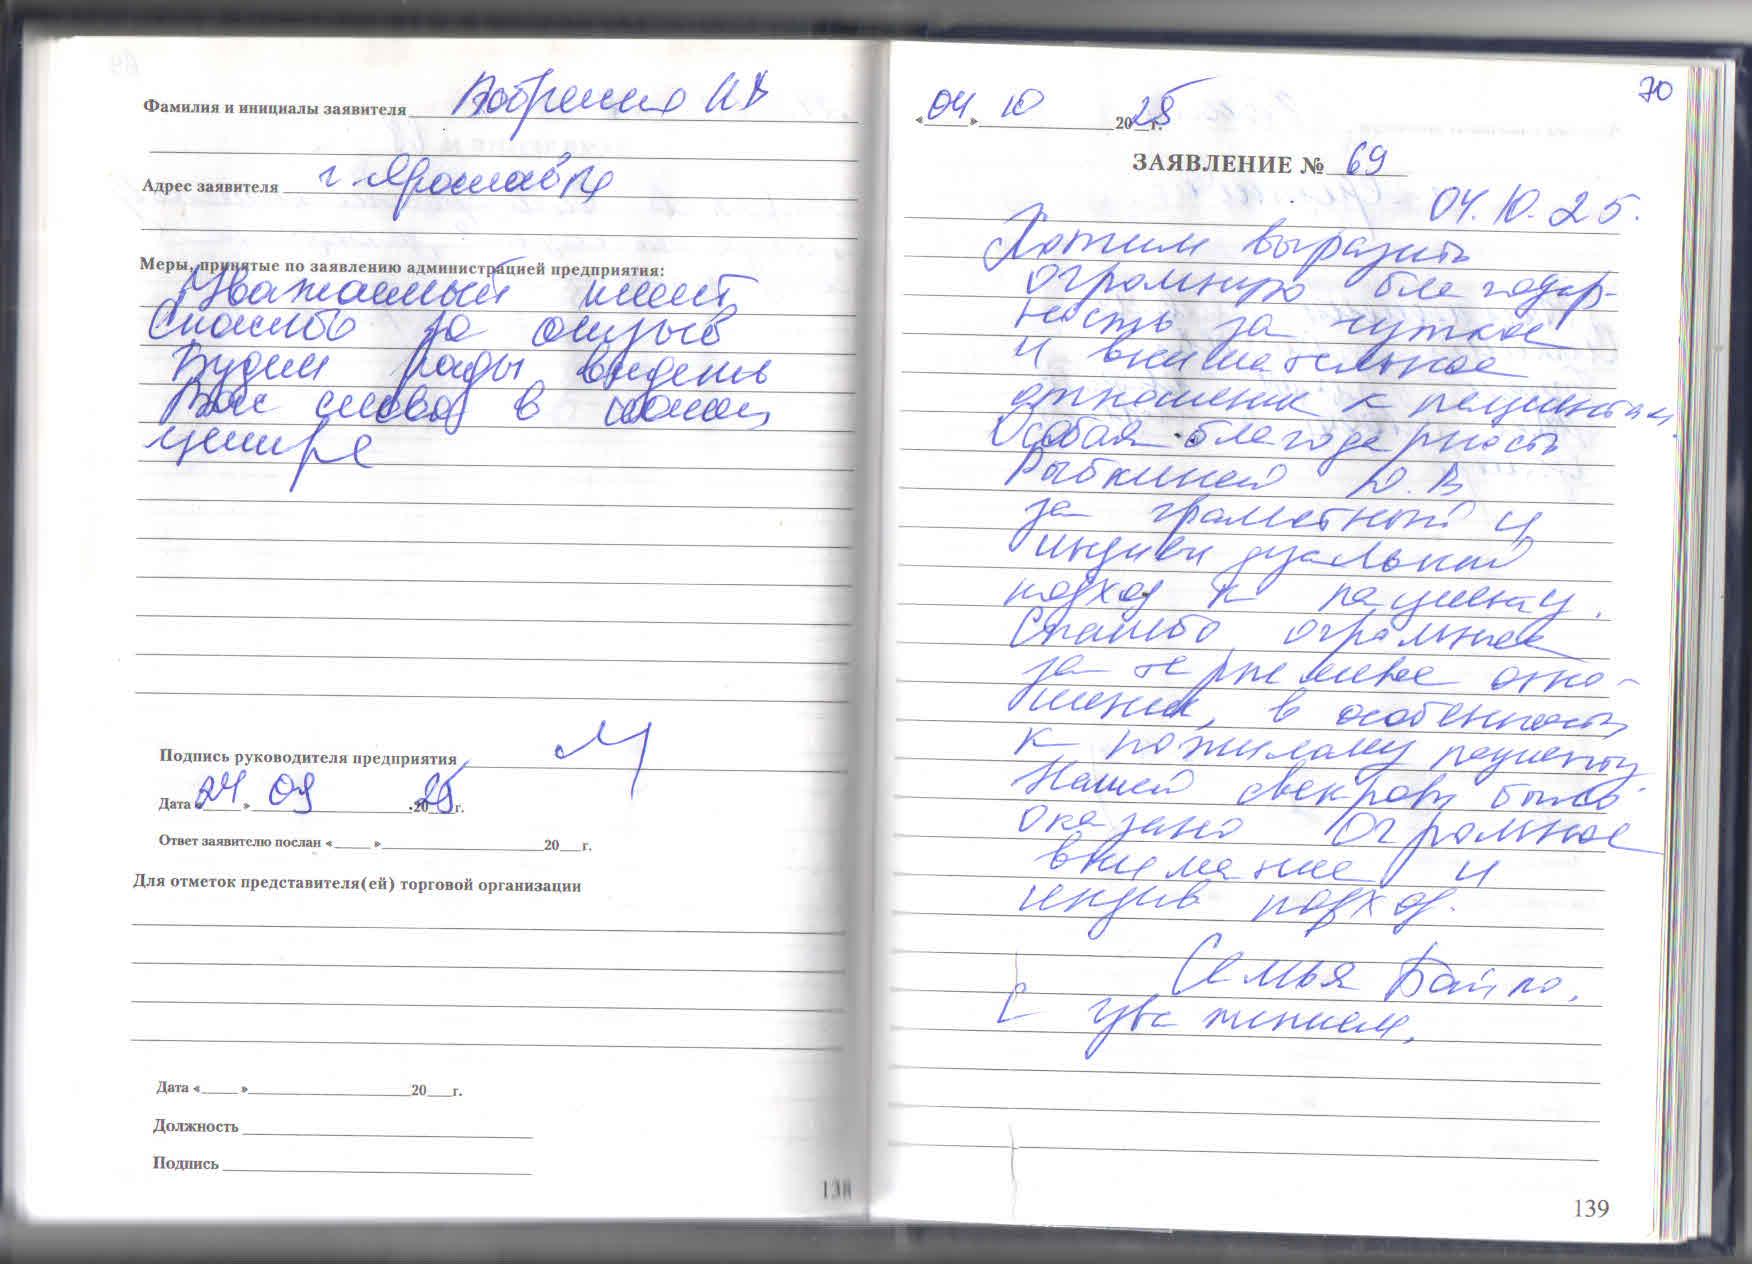 Фамилия и инициалы заявителя
Адрес заявителя г. Ярославль
Меры, принятые по заявлению администрацией предприятия:
Уважаемый клиент,
Спасибо за отзыв
Будем рады видеть
Вас снова в нашем
центре
Подпись руководителя предприятия
Дата «24» 09 2025 г.
Ответ заявителю послан «____» ____ 20__ г.
Для отметок представителя(ей) торговой организации
Дата «____» ____ 20__ г.
Должность
Подпись
138
70
«04» 10 2025 г.
ЗАЯВЛЕНИЕ № 69
04.10.25.
Хотим выразить
огромную благодар-
ность за чуткое
и внимательное
отношение к пациентам.
Особая благодарность
Рыбкиной Ю.В
за грамотный и
индивидуальный
подход к пациенту.
Спасибо огромное
за терпеливое отно-
шение, в особенности
к пожилому пациенту.
Нашей свекрови было
оказано огромное
внимание и
индив подход.
Семья
С уважением,
139